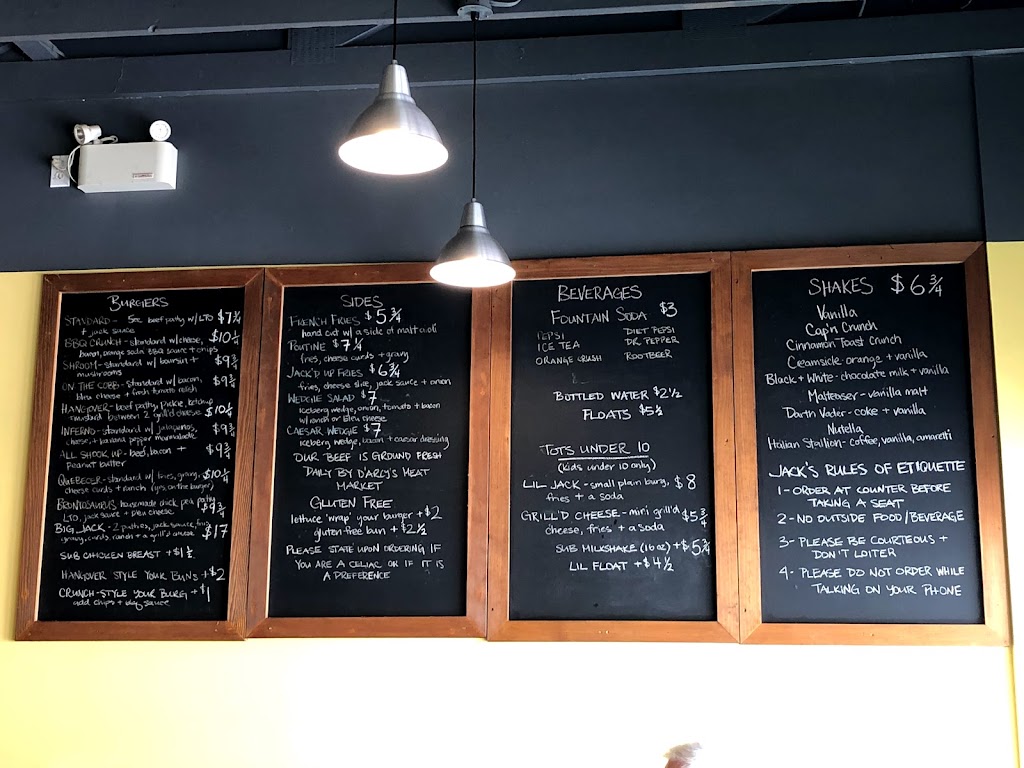 BURGERS
STANDARD - 5oz beef patty w/ LTO $7 3/4
+ jack sauce
BBQ CRUNCH - standard w/cheese, $10 1/4
bacon, orange soda BBQ sauce + chips
SHROOM - standard w/ boursin + $9 3/4
mushrooms
ON THE COBB - standard w/ bacon, $9 3/4
bleu cheese + fresh tomato relish
HANGOVER - beef patty, pickle, ketchup
mustard between 2 grill'd cheese $10 1/4
INFERNO - standard w/ jalapenos, $9 3/4
cheese, + banana pepper marmalade
ALL SHOOK UP - beef, bacon + $9 3/4
peanut butter
QUEBECER - standard w/ fries, gravy, $10 1/4
cheese curds + ranch (yes, on the burger)
BRONTOSAURUS housemade chick pea patty
LTO, jack sauce + bleu cheese $9 3/4
BIG JACK - 2 patties, jack sauce, fries
gravy, curds, ranch + a grill'd cheese $17
SUB CHICKEN BREAST + $1 1/2
HANGOVER STYLE YOUR BUNS + $2
CRUNCH-STYLE YOUR BURG + $1
add chips + bbq sauce
SIDES
FRENCH FRIES $5 3/4
hand cut w/ a side of malt aioli
POUTINE $7 1/4
fries, cheese curds + gravy
JACK'D UP FRIES $6 3/4
fries, cheese slice, jack sauce + onion
WEDGIE SALAD $7
iceberg wedge, onion, tomato + bacon
w/ ranch or bleu cheese
CAESAR WEDGIE $7
iceberg wedge, bacon + caesar dressing
OUR BEEF IS GROUND FRESH
DAILY BY D'ARCY'S MEAT
MARKET
GLUTEN FREE
lettuce 'wrap' your burger + $2
gluten free bun + $2 1/2
PLEASE STATE UPON ORDERING IF
YOU ARE A CELIAC OR IF IT IS
A PREFERENCE
BEVERAGES
FOUNTAIN SODA $3
PEPSI DIET PEPSI
ICE TEA DR. PEPPER
ORANGE CRUSH ROOTBEER
BOTTLED WATER $2 1/2
FLOATS $5 1/2
TOTS UNDER 10
(kids under 10 only)
LIL JACK - small plain burg, $8
fries + a soda
GRILL'D CHEESE - mini grill'd $5 3/4
cheese, fries + a soda
SUB MILKSHAKE (16oz) + $5 3/4
LIL FLOAT + $4 1/2
SHAKES $6 3/4
Vanilla
Cap'n Crunch
Cinnamon Toast Crunch
Creamsicle - orange + vanilla
Black + White - chocolate milk + vanilla
Malteaser - vanilla malt
Darth Vader - coke + vanilla
Nutella
Italian Stallion - coffee, vanilla, amaretti
JACK'S RULES OF ETIQUETTE
1 - ORDER AT COUNTER BEFORE
TAKING A SEAT
2 - NO OUTSIDE FOOD/BEVERAGE
3 - PLEASE BE COURTEOUS +
DON'T LOITER
4 - PLEASE DO NOT ORDER WHILE
TALKING ON YOUR PHONE